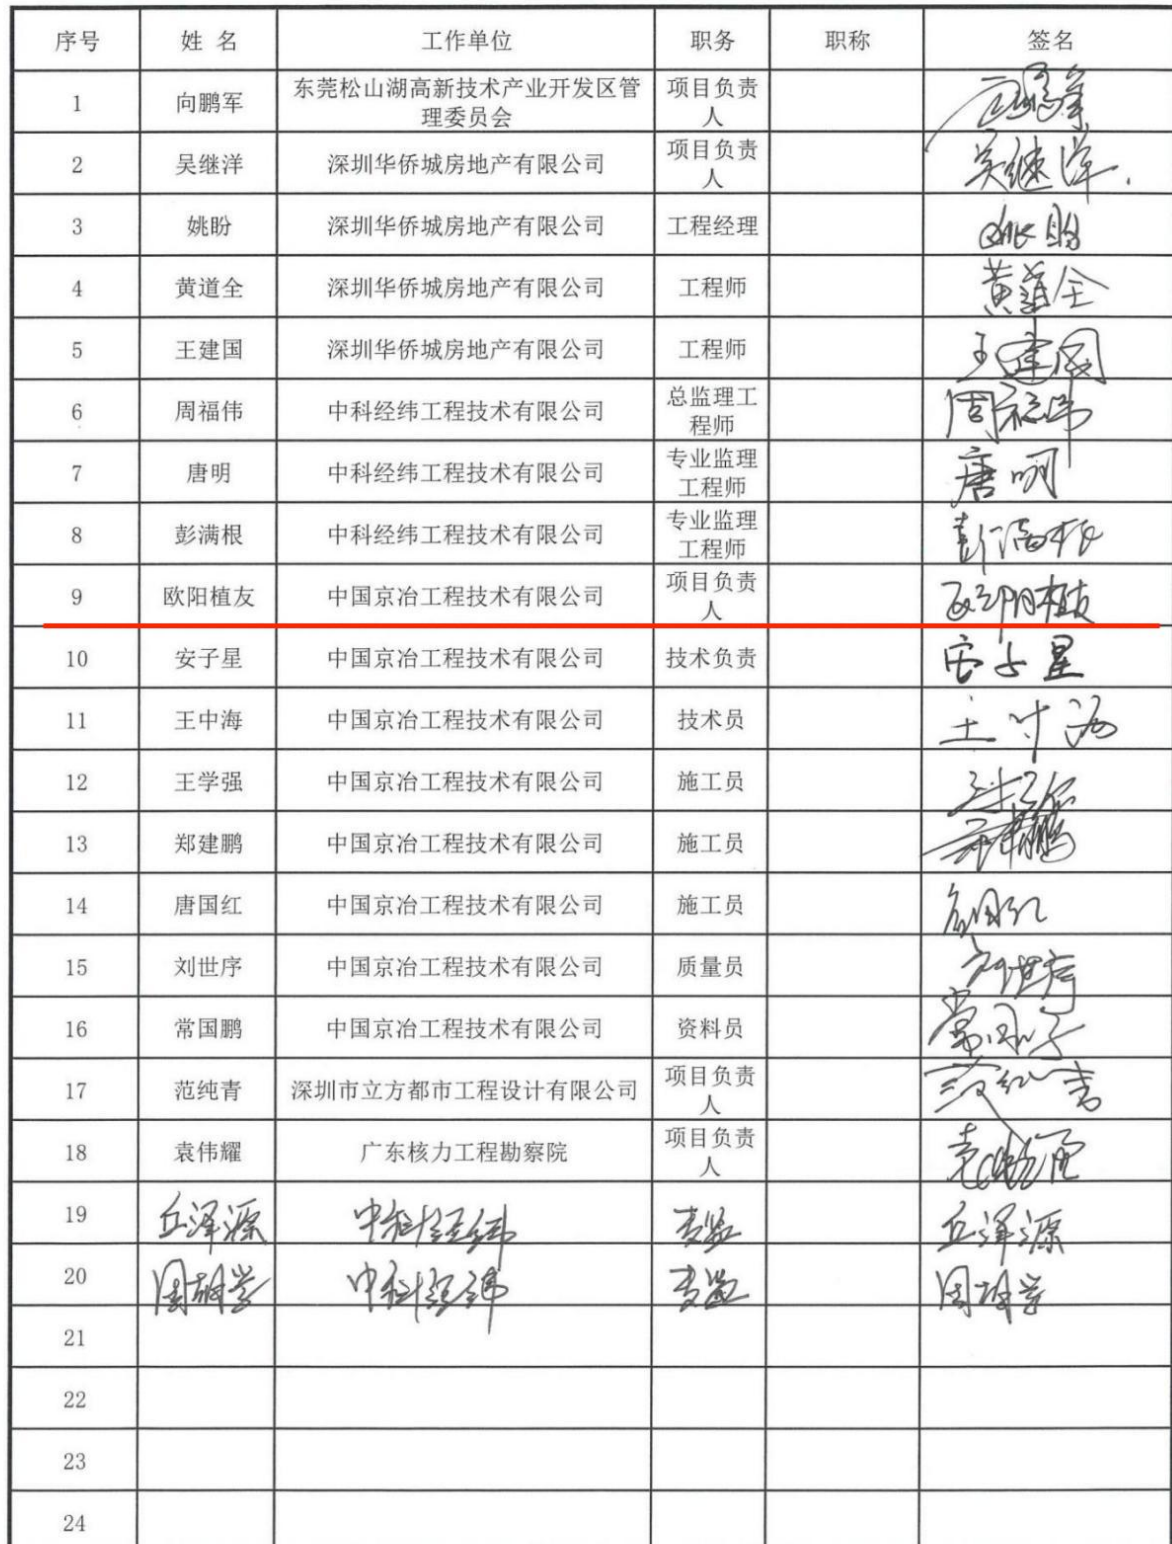 序号 姓 名 工作单位 职务 职称 签名
1 向鹏军 东莞松山湖高新技术产业开发区管理委员会 项目负责人
2 吴继洋 深圳华侨城房地产有限公司 项目负责人 吴继洋
3 姚盼 深圳华侨城房地产有限公司 工程经理 姚盼
4 黄道全 深圳华侨城房地产有限公司 工程师 黄道全
5 王建国 深圳华侨城房地产有限公司 工程师 王建国
6 周福伟 中科经纬工程技术有限公司 总监理工程师 周福伟
7 唐明 中科经纬工程技术有限公司 专业监理工程师 唐明
8 彭满根 中科经纬工程技术有限公司 专业监理工程师 彭满根
9 欧阳植友 中国京冶工程技术有限公司 项目负责人 欧阳植友
10 安子星 中国京冶工程技术有限公司 技术负责 安子星
11 王中海 中国京冶工程技术有限公司 技术员 王中海
12 王学强 中国京冶工程技术有限公司 施工员
13 郑建鹏 中国京冶工程技术有限公司 施工员
14 唐国红 中国京冶工程技术有限公司 施工员 唐国红
15 刘世序 中国京冶工程技术有限公司 质量员 刘世序
16 常国鹏 中国京冶工程技术有限公司 资料员
17 范纯青 深圳市立方都市工程设计有限公司 项目负责人 范纯青
18 袁伟耀 广东核力工程勘察院 项目负责人
19 丘泽源 中科经纬 专监 丘泽源
20 周胡学 中科经纬 专监 周胡学
21
22
23
24